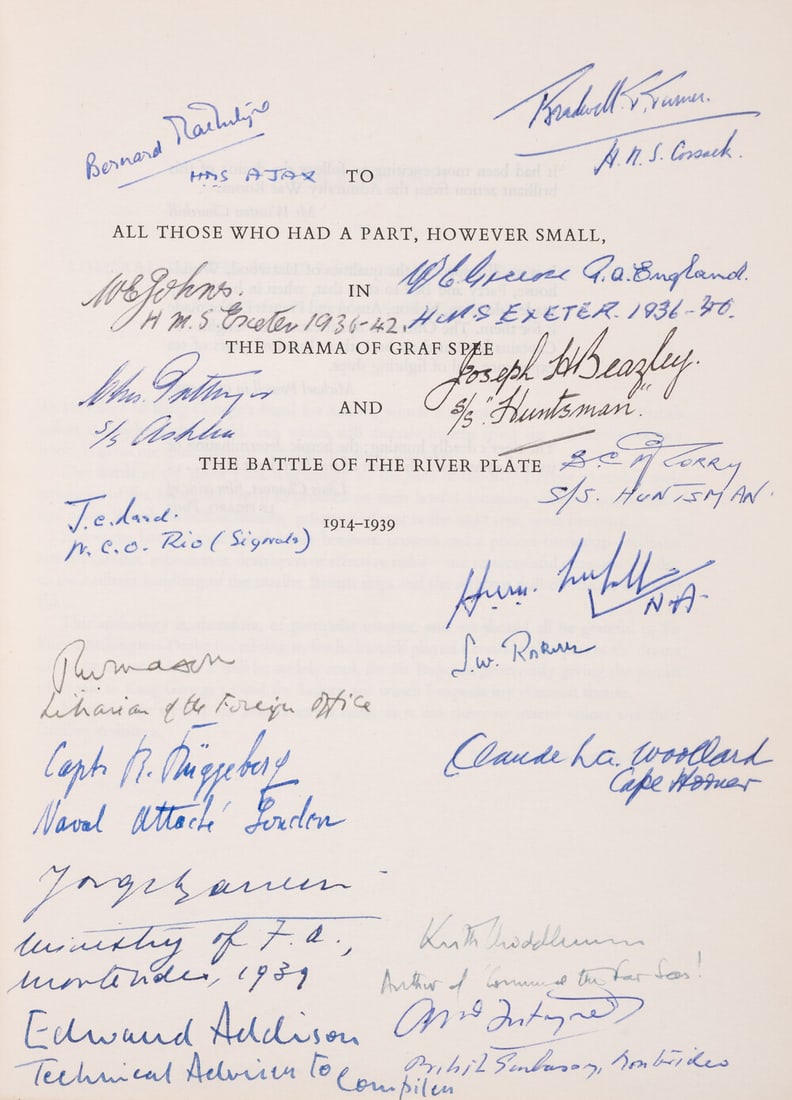 Bernard
HMS AJAX
Bradwell T. Turner.
H.M.S. Cossack.
TO
ALL THOSE WHO HAD A PART, HOWEVER SMALL,
WE Johns.
H M.S Exeter 1936-42.
IN
W E. G.A. England.
H.M.S EXETER. 1936-40.
THE DRAMA OF GRAF SPEE
Joseph H Beazley.
S/S "Huntsman".
Chas.
S/S Ashlea
AND
THE BATTLE OF THE RIVER PLATE
S/S. HUNTSMAN.
J.C.
N.C.O. Rio (Signals)
1914–1939
N.A.
S.W.
Librarian of the Foreign Office
Capt. R.
Naval Attaché London
Claude L.A. Woollard
Cape Horner
Ministry of F.A.,
Montevideo, 1939
Keith Middlemas
Author of "Command the Far Seas"
Edward Addison
Technical Adviser to Compiler
British Embassy, Montevideo